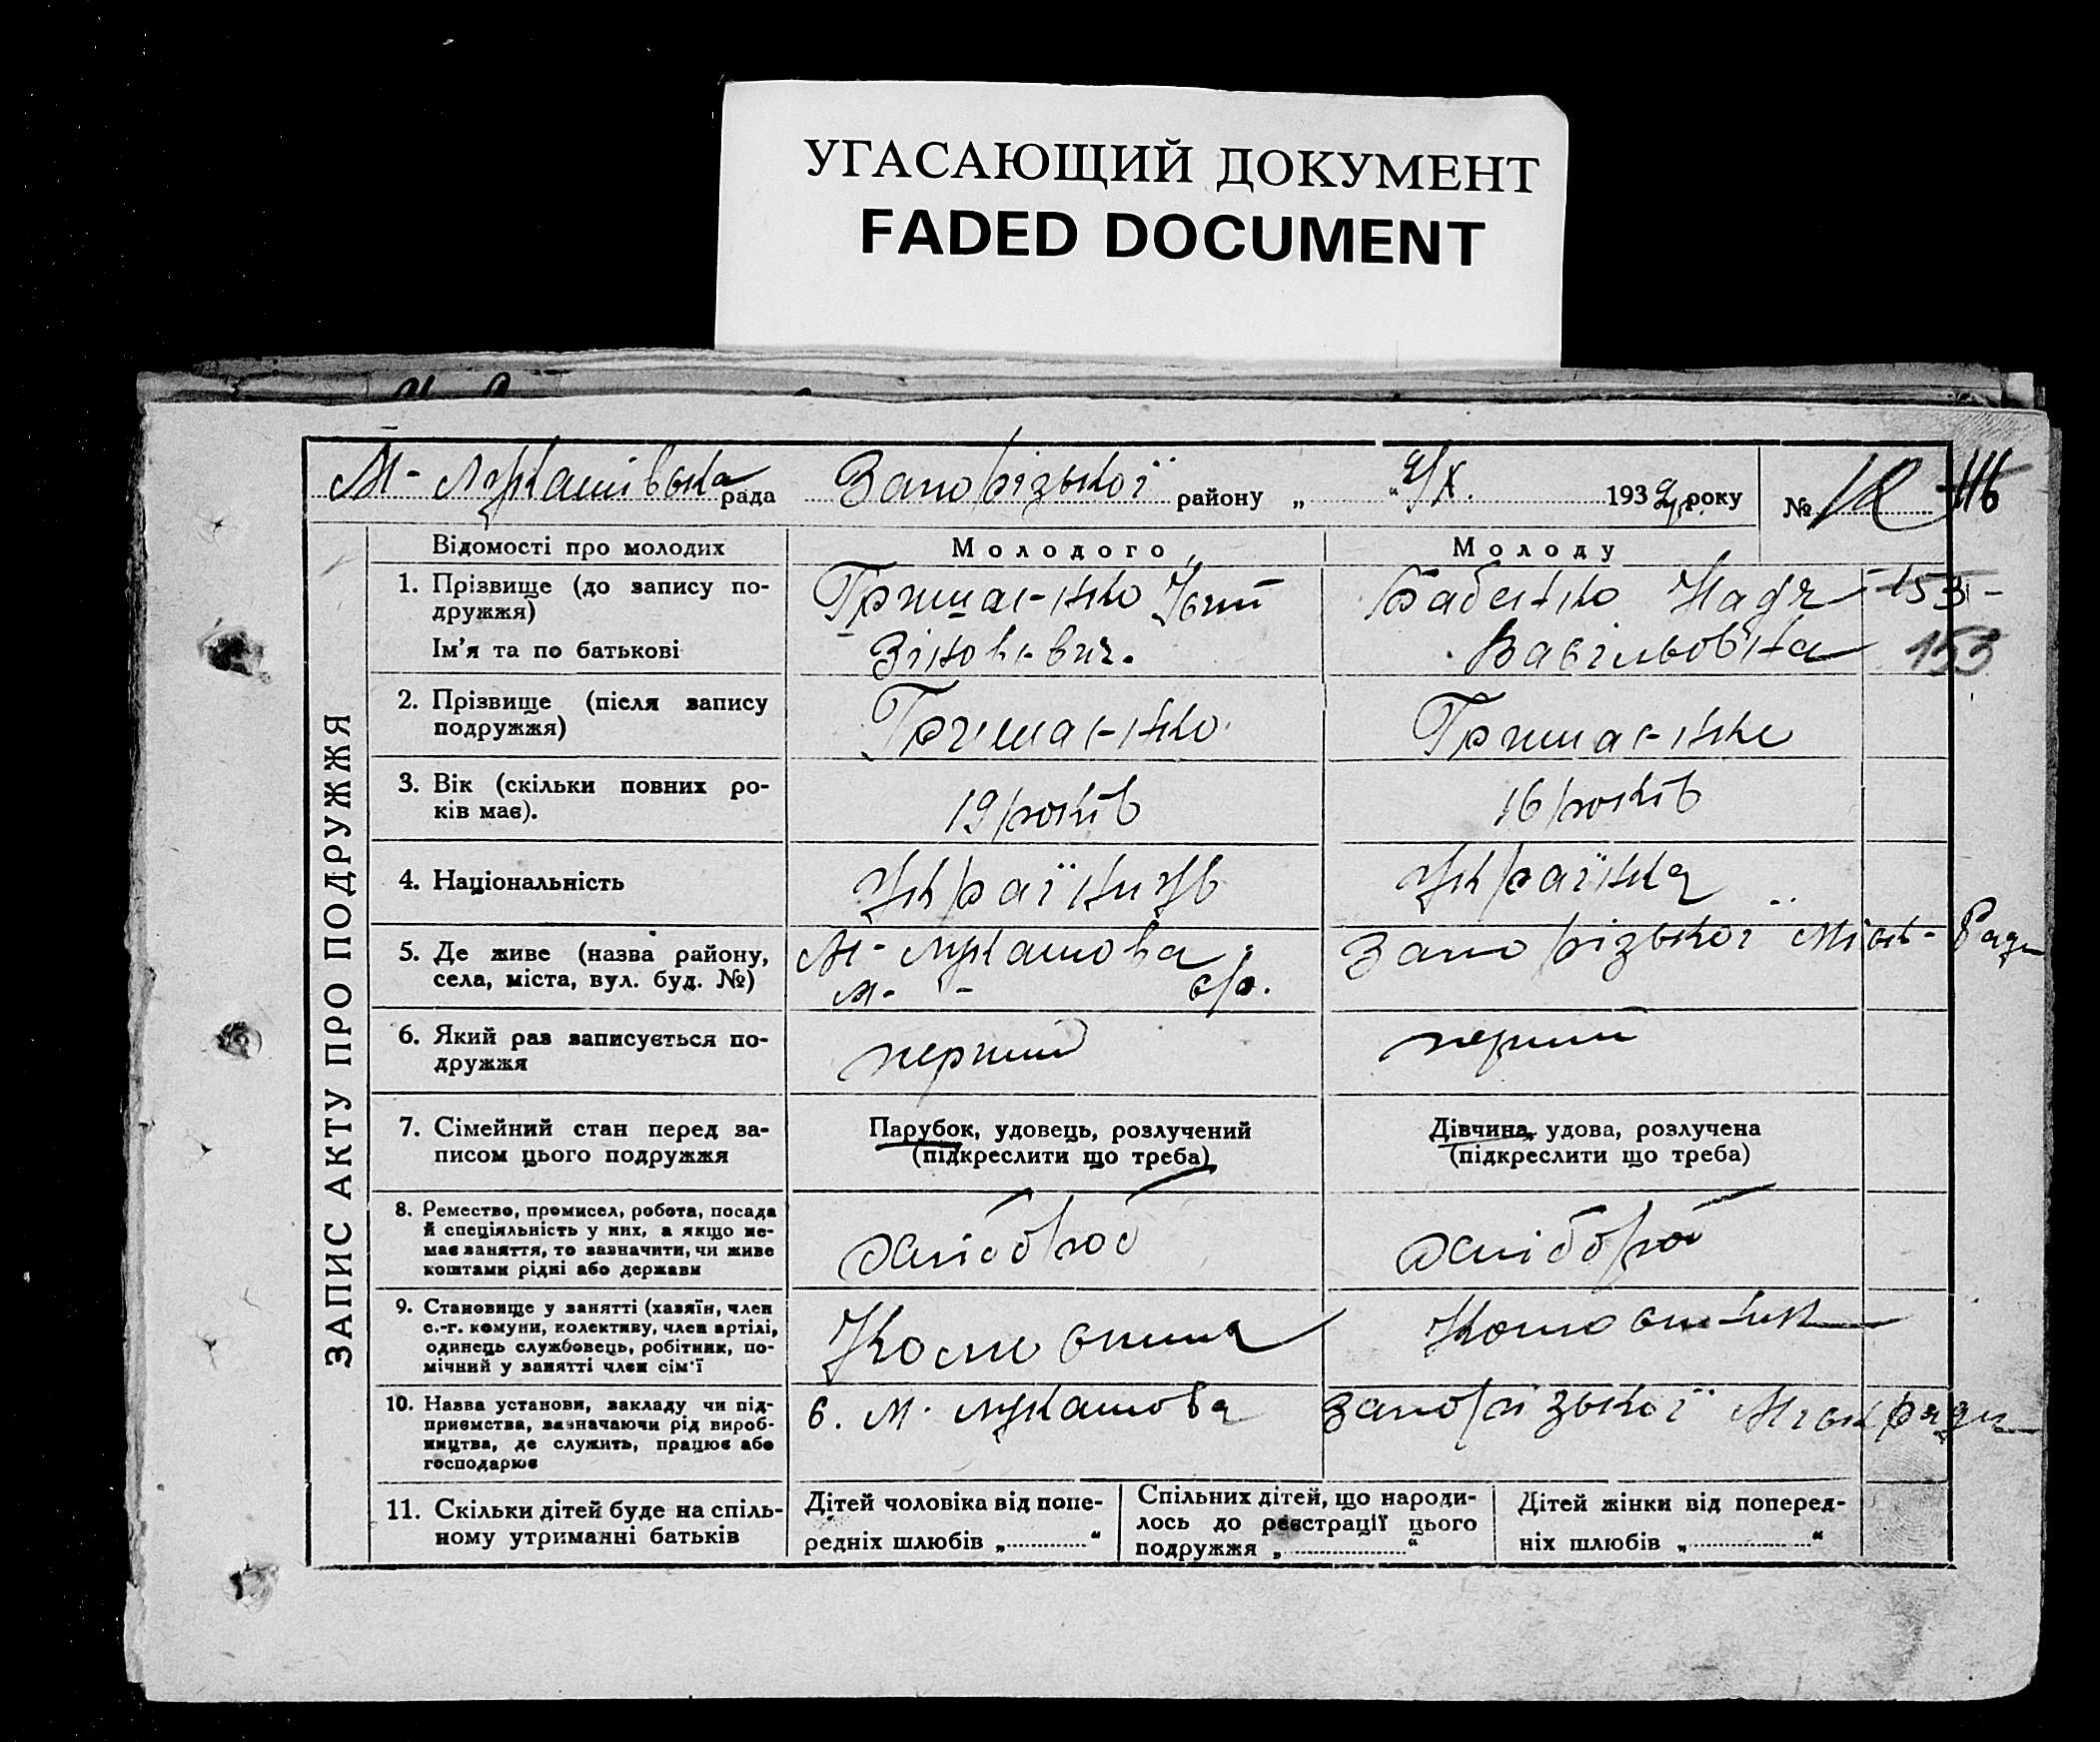 УГАСАЮЩИЙ ДОКУМЕНТ
FADED DOCUMENT
М-Лукашівська рада Запорізької району „ “ 2/X. 1932 року № 12
ЗАПИС АКТУ ПРО ПОДРУЖЖЯ
Відомості про молодих
Молодого
Молоду
1. Прізвище (до запису по-
дружжя)
Ім'я та по батькові
Бабенко Надя
Васільовна
153
153
2. Прізвище (після запису
подружжя)
3. Вік (скільки повних ро-
ків має).
19 років
16 років
4. Національність
Українець
Українка
5. Де живе (назва району,
села, міста, вул. буд. №)
М-Лукашова
М- - с/р.
Запорізької Міськ-Ради
6. Який раз записується по-
дружжя
перший
перший
7. Сімейний стан перед за-
писом цього подружжя
Парубок, удовець, розлучений
(підкреслити що треба)
Дівчина, удова, розлучена
(підкреслити що треба)
8. Ремество, промисел, робота, посада
й спеціяльність у них, а якщо не-
має заняття, то зазначити, чи живе
коштами рідні або держави
хлібороб
хлібороб
9. Становище у занятті (хазяїн, член
с.-г. комуни, колективу, член артілі,
одинець службовець, робітник, по-
мічний у занятті член сім'ї
10. Назва установи, закладу чи під-
приємства, зазначаючи рід вироб-
ництва, де служить, працює або
господарює
в. М. Лукашова
Запорізької Міськради
11. Скільки дітей буде на спіль-
ному утриманні батьків
Дітей чоловіка від попе-
редніх шлюбів „ “
Спільних дітей, що народи-
лось до реєстрації цього
подружжя „ “
Дітей жінки від поперед-
ніх шлюбів „ “